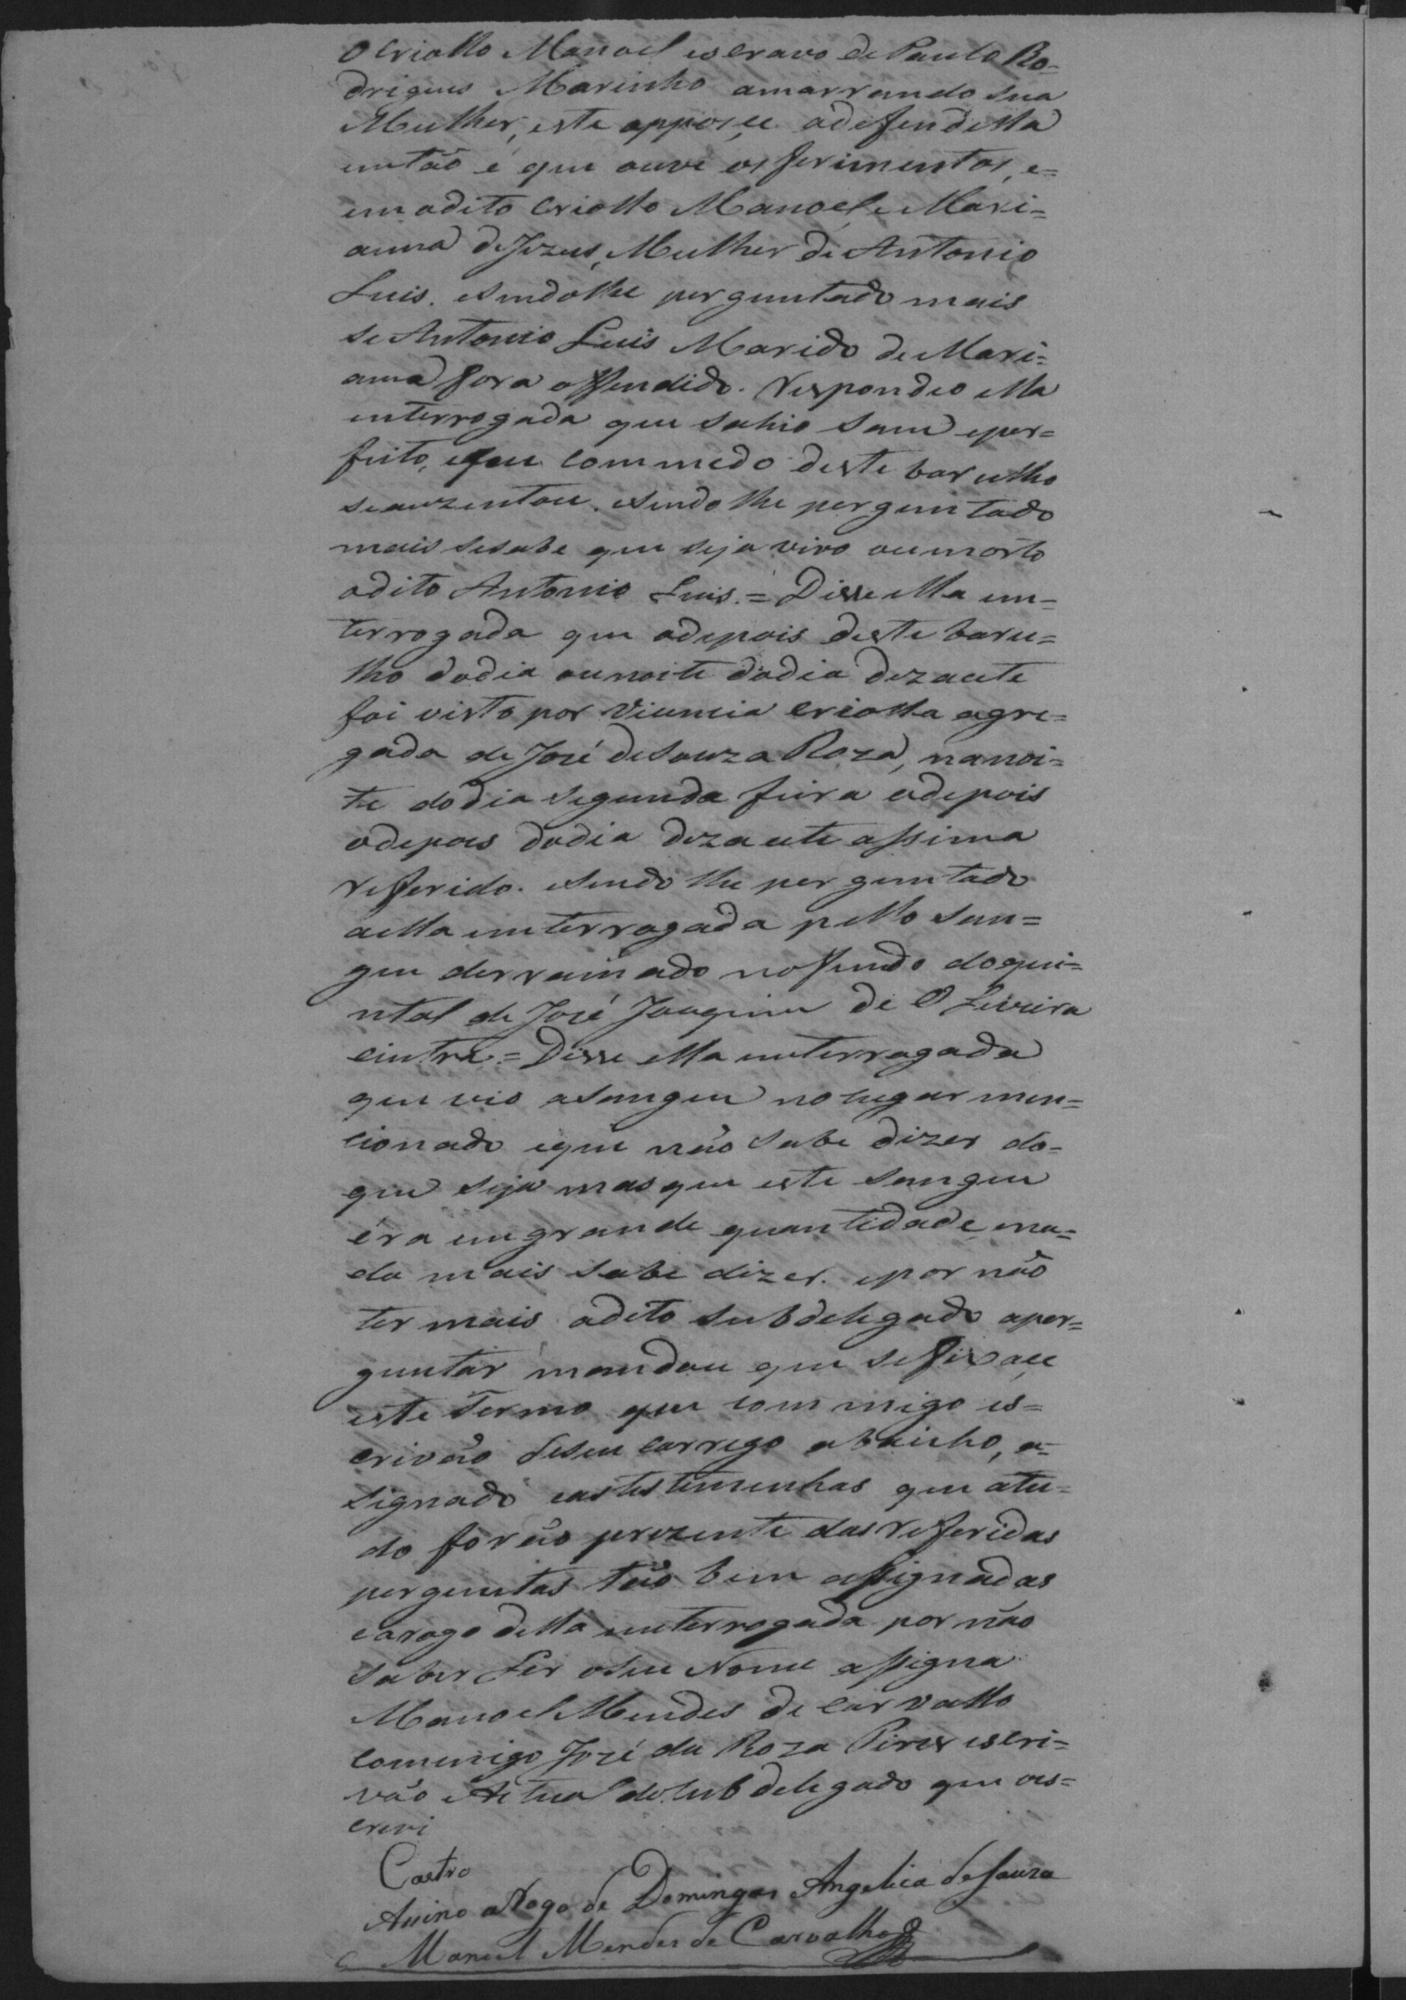 O criollo Manoel escravo de Paulo Ro-
drigues Marinho amarrando sua
Mulher, este appoçe adefendella
então é que ouve os ferimentos, e=
em odito Criollo Manoel e Mari=
anna deJezus, Mulher de Antonio
Luis. esendolhe perguntado mais
se Antonio Luis Marido de Mari=
ana fora offendido. Respondeo ella
enterrogada que sahio sam eper=
feito, eque commedo deste barulho
seauzentou. esendo lhe perguntado
mais sesabe que seja vivo oumorto
odito Antonio Luis. = Disse ella en=
terrogada que adepois deste baru=
lho dodia ounoite dodia dezacete
foi visto por Vicencia criolla agre=
gada de José deSouza Roza, nanoi=
te dodia segunda feira adepois
adepois dodia dezacete assima
referido. esendo lhe perguntado
aella enterrogada pello san=
gue derramado nofundo doqui=
ntal de José Joaquim de OLiveira
cintra = Disse ella enterrogada
que vio osangue nolugar men=
cionado eque não sabe dizer do=
que seja mas que este sangue
éra emgrande quantidade, ena=
da mais sabe dizer. epor não
ter mais odito subdelegado aper=
guntar mandou que sefixace
este Termo que commigo es=
crivão deseu carrego abaicho, a=
signado eas testemunhas que atu=
do forão prezente das referidas
perguntas tão bem assignadas
earogo della enterrogada por não
saber Ler oseu Nome assigna
Manoel Mendes de Carvallo
comigo José da Roza Pires escri=
vão Actual dosubdelegado que oes=
crevi
Castro
Asino aRogo de Domingas Angelica deSouza
Manoel Mendes de Carvalho